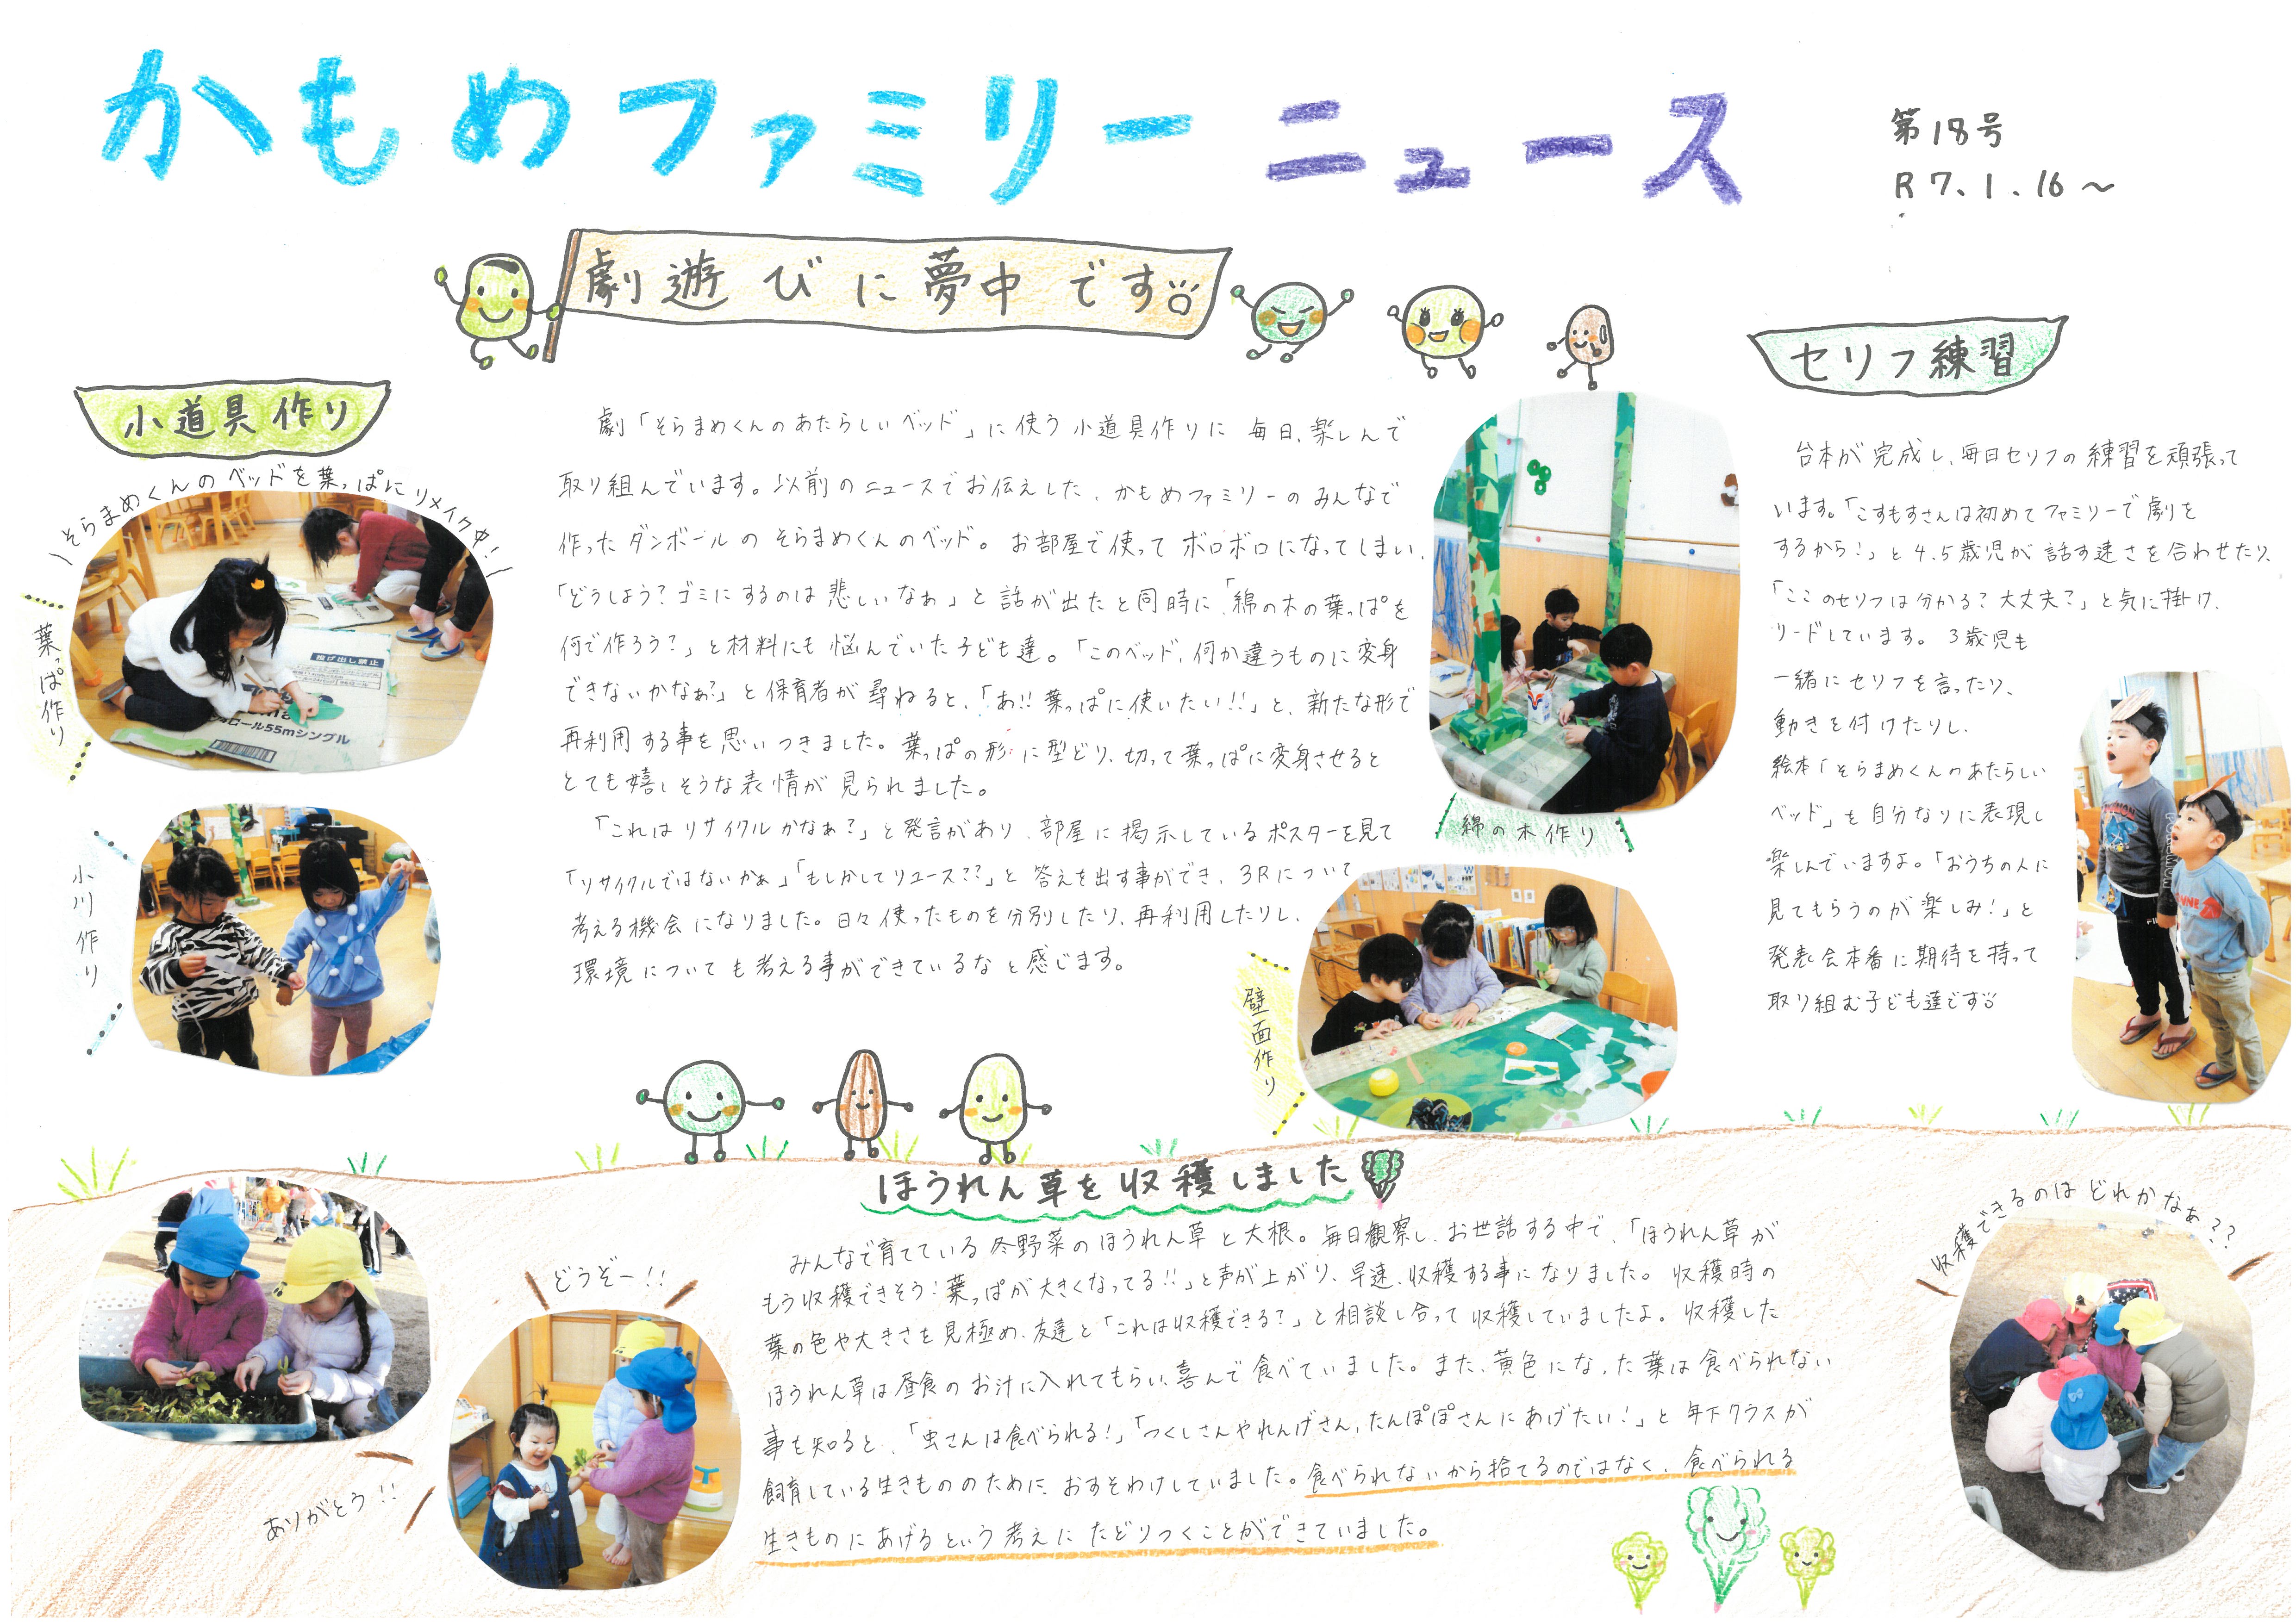 かもめファミリーニュース
第18号
R7.1.16〜
劇遊びに夢中です
小道具作り
\そらまめくんのベッドを葉っぱにリメイク中!/
葉っぱ作り
投げ出し禁止
ロール55mシングル
小川作り
劇「そらまめくんのあたらしいベッド」に使う小道具作りに毎日、楽しんで
取り組んでいます。以前のニュースでお伝えした、かもめファミリーのみんなで
作ったダンボールのそらまめくんのベッド。お部屋で使ってボロボロになってしまい、
「どうしよう?ゴミにするのは悲しいなぁ」と話が出たと同時に、「綿の木の葉っぱを
何で作ろう?」と材料にも悩んでいた子ども達。「このベッド、何か違うものに変身
できないかなぁ?」と保育者が尋ねると、「あ!!葉っぱに使いたい!!」と、新たな形で
再利用する事を思いつきました。葉っぱの形に型どり、切って葉っぱに変身させると
とても嬉しそうな表情が見られました。
「これはリサイクルかなぁ?」と発言があり、部屋に掲示しているポスターを見て
「リサイクルではないかぁ」「もしかしてリユース??」と答えを出す事ができ、3Rについて
考える機会になりました。日々使ったものを分別したり、再利用したりし、
環境についても考える事ができているなと感じます。
綿の木作り
壁面作り
セリフ練習
台本が完成し、毎日セリフの練習を頑張って
います。「こすもすさんは初めてファミリーで劇を
するから!」と4.5歳児が話す速さを合わせたり、
「ここのセリフは分かる?大丈夫?」と気に掛け、
リードしています。3歳児も
一緒にセリフを言ったり、
動きを付けたりし、
絵本「そらまめくんのあたらしい
ベッド」を自分なりに表現し
楽しんでいますよ。「おうちの人に
見てもらうのが楽しみ!」と
発表会本番に期待を持って
取り組む子ども達です
ほうれん草を収穫しました
みんなで育てている冬野菜のほうれん草と大根。毎日観察し、お世話する中で、「ほうれん草が
もう収穫できそう!葉っぱが大きくなってる!!」と声が上がり、早速、収穫する事になりました。収穫時の
葉の色や大きさを見極め、友達と「これは収穫できる?」と相談し合って収穫していましたよ。収穫した
ほうれん草は昼食のお汁に入れてもらい、喜んで食べていました。また、黄色になった葉は食べられない
事を知ると、「虫さんは食べられる!」「つくしさんやれんげさん、たんぽぽさんにあげたい!」と年下クラスが
飼育している生きもののために、おすそわけしていました。食べられないから捨てるのではなく、食べられる
生きものにあげるという考えにたどりつくことができていました。
どうぞー!!
ありがとう!!
収穫できるのはどれかなぁ??